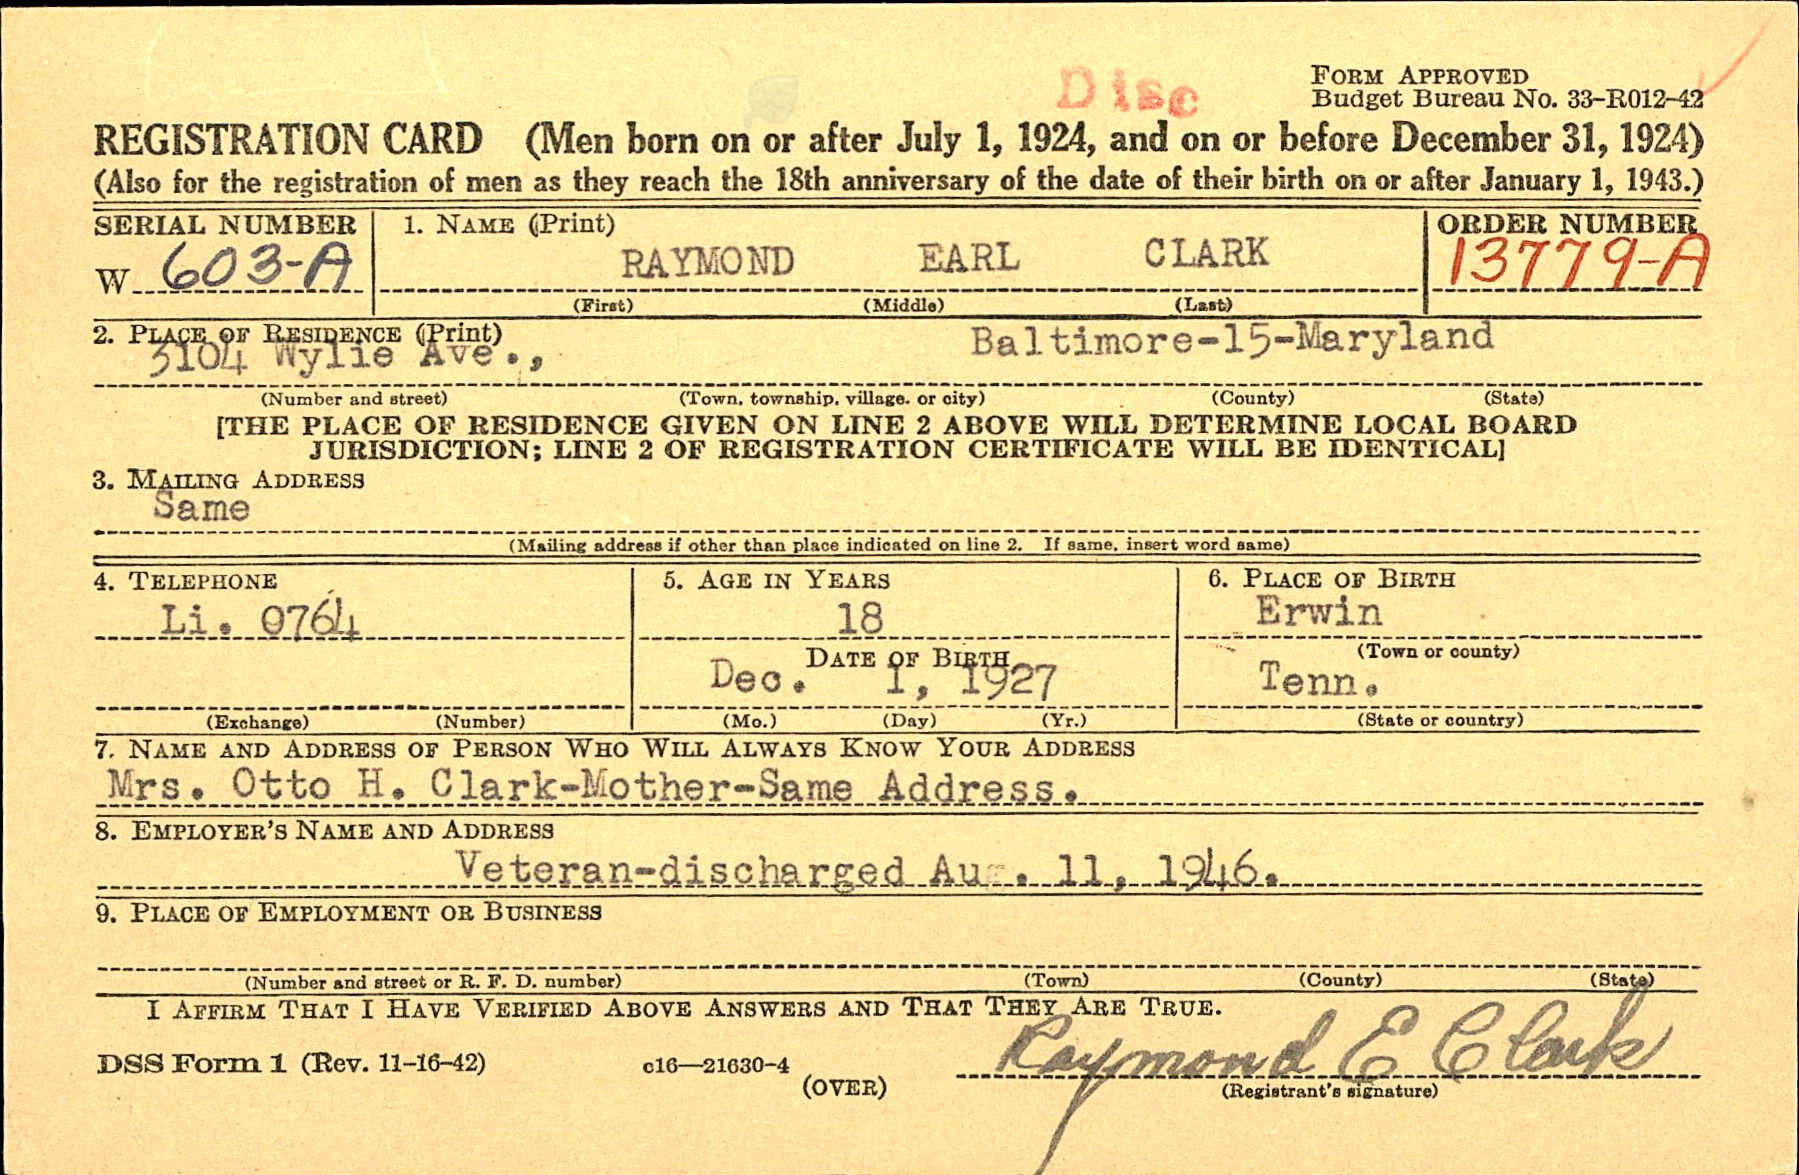 Disc
FORM APPROVED
Budget Bureau No. 33-R012-42
REGISTRATION CARD (Men born on or after July 1, 1924, and on or before December 31, 1924)
(Also for the registration of men as they reach the 18th anniversary of the date of their birth on or after January 1, 1943.)
SERIAL NUMBER 1. NAME (Print) ORDER NUMBER
W 603-A RAYMOND EARL CLARK 13779-A
(First) (Middle) (Last)
2. PLACE OF RESIDENCE (Print)
3104 Wylie Ave., Baltimore-15-Maryland
(Number and street) (Town, township, village, or city) (County) (State)
[THE PLACE OF RESIDENCE GIVEN ON LINE 2 ABOVE WILL DETERMINE LOCAL BOARD
JURISDICTION; LINE 2 OF REGISTRATION CERTIFICATE WILL BE IDENTICAL]
3. MAILING ADDRESS
Same
(Mailing address if other than place indicated on line 2. If same, insert word same)
4. TELEPHONE 5. AGE IN YEARS 6. PLACE OF BIRTH
Li. 0764 18 Erwin
DATE OF BIRTH (Town or county)
Dec. 1, 1927 Tenn.
(Exchange) (Number) (Mo.) (Day) (Yr.) (State or country)
7. NAME AND ADDRESS OF PERSON WHO WILL ALWAYS KNOW YOUR ADDRESS
Mrs. Otto H. Clark-Mother-Same Address.
8. EMPLOYER'S NAME AND ADDRESS
Veteran-discharged Aug. 11, 1946.
9. PLACE OF EMPLOYMENT OR BUSINESS
(Number and street or R. F. D. number) (Town) (County) (State)
I AFFIRM THAT I HAVE VERIFIED ABOVE ANSWERS AND THAT THEY ARE TRUE.
DSS Form 1 (Rev. 11-16-42) c16—21630-4 Raymond E Clark
(OVER) (Registrant's signature)